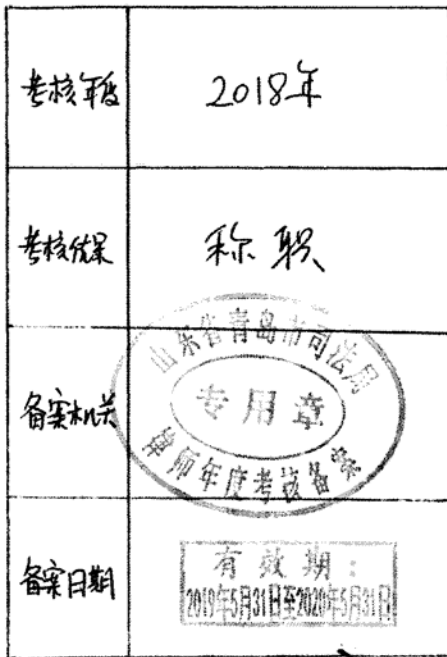 考核年度
2018年
考核结果
称职
备案机关
山东省青岛市司法局
专用章
律师年度考核备案
备案日期
有效期：
2019年5月31日至2020年5月31日